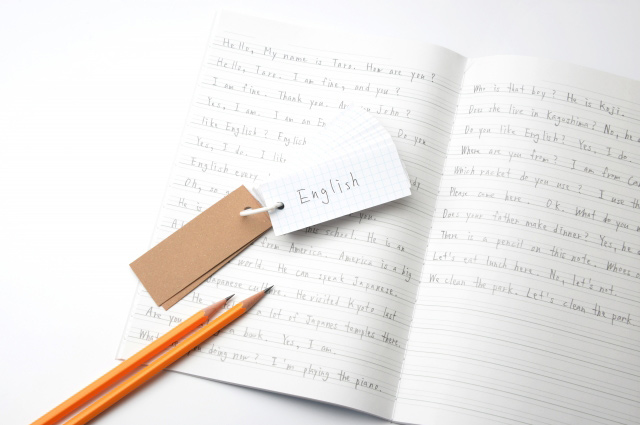 Hello, My name is Taro. How are you?
Hello, Taro. I am fine, and you?
I am fine. Thank you. Are John?
Yes, I am. I am an Do you
like English? English
Yes, I do. I like
English every
Oh, so you.
He is
school. He is an
from America. America is a big
world. He can speak Japanese.
Japanese culture. He visited Kyoto last
He lot of Japanes temples there.
Are you book. Yes, I am.
What doing now? I'm playing the piano.
English
Who is that boy? He is Koji.
Does she live in Kagoshima? No, he
Do you like English? Yes. I do
Where are you from? I am from Can
Which racket do you use? I use th
Please come here. O.K. What do you
Does your father make dinner? Yes, he
There is a pencil on this note. Whose
Let's eat lunch here. No, let's not.
We clean the park. Let's clean the park